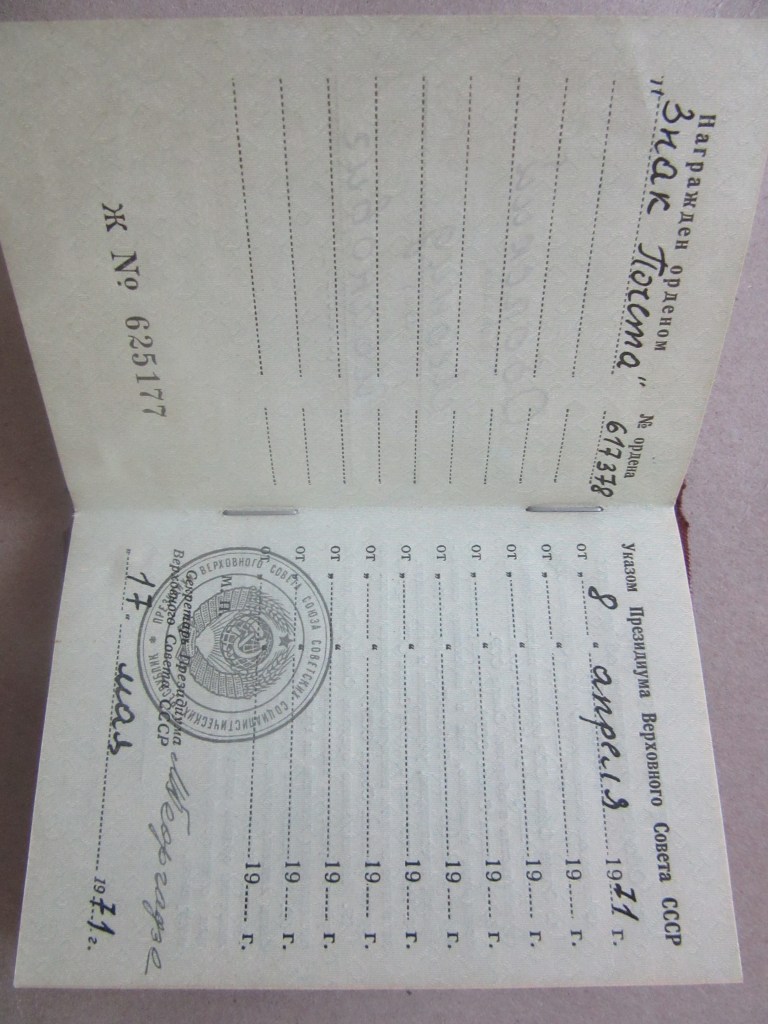 Награжден орденом
№ ордена
„Знак Почета“ 617378
Ж № 625177
Указом Президиума Верховного Совета СССР
от „ 8 “ апреля 1971 г.
от „ “ 19 г.
от „ “ 19 г.
от „ “ 19 г.
от „ “ 19 г.
от „ “ 19 г.
от „ “ 19 г.
от „ “ 19 г.
от „ “ 19 г.
от „ “ 19 г.
М. П.
ВЕРХОВНОГО СОВЕТА СОЮЗА СОВЕТСКИХ СОЦИАЛИСТИЧЕСКИХ
Секретарь Президиума
Верховного Совета СССР
Георгадзе
„ 17 “ мая 1971 г.